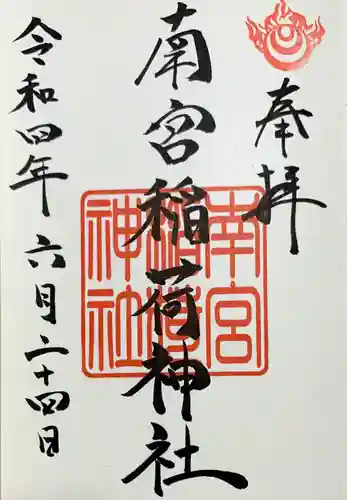 奉拝
南宮稲荷神社
南宮
稲荷
神社
令和四年六月二十四日